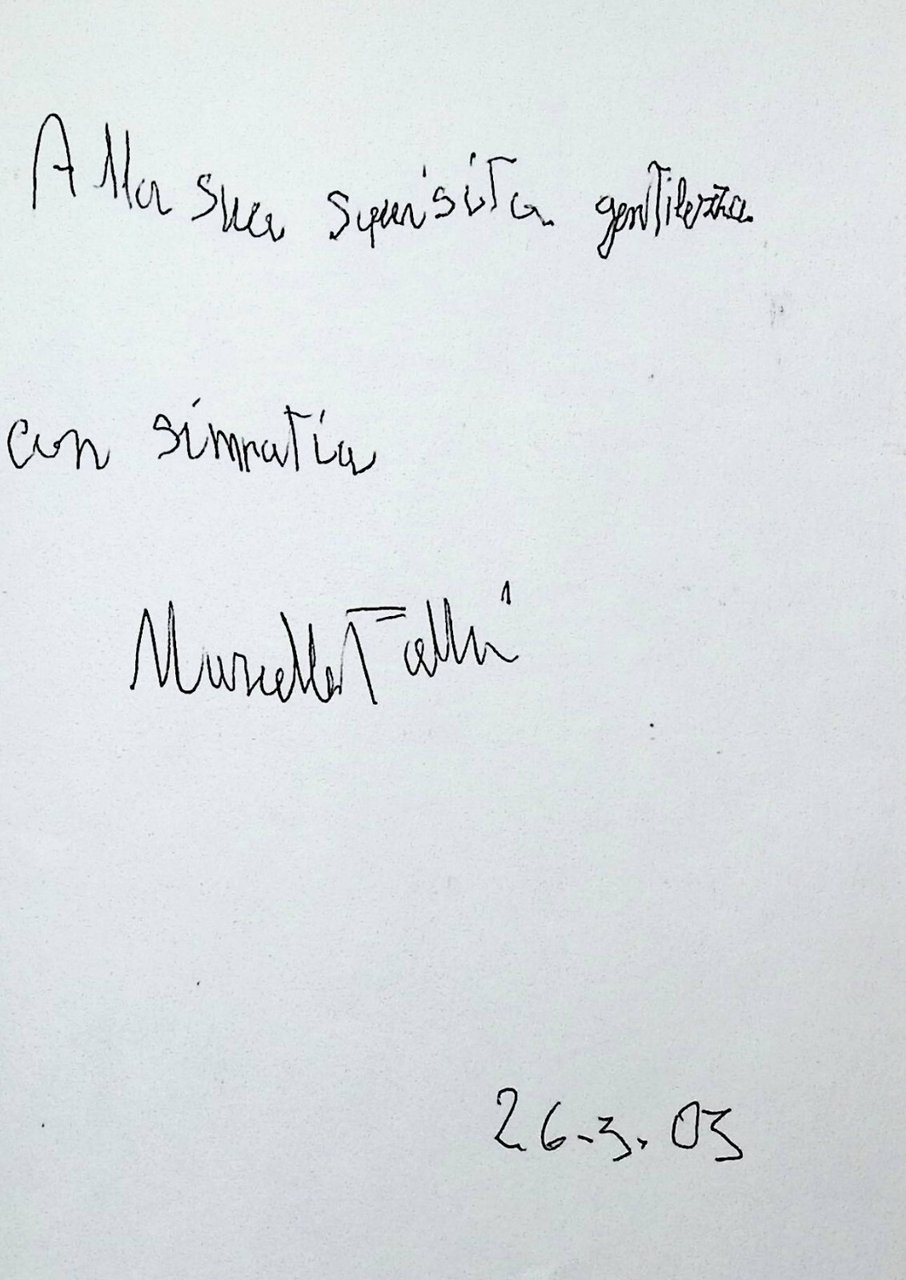 Alla sua squisita gentilezza
con simpatia
Marcello
26.3.03